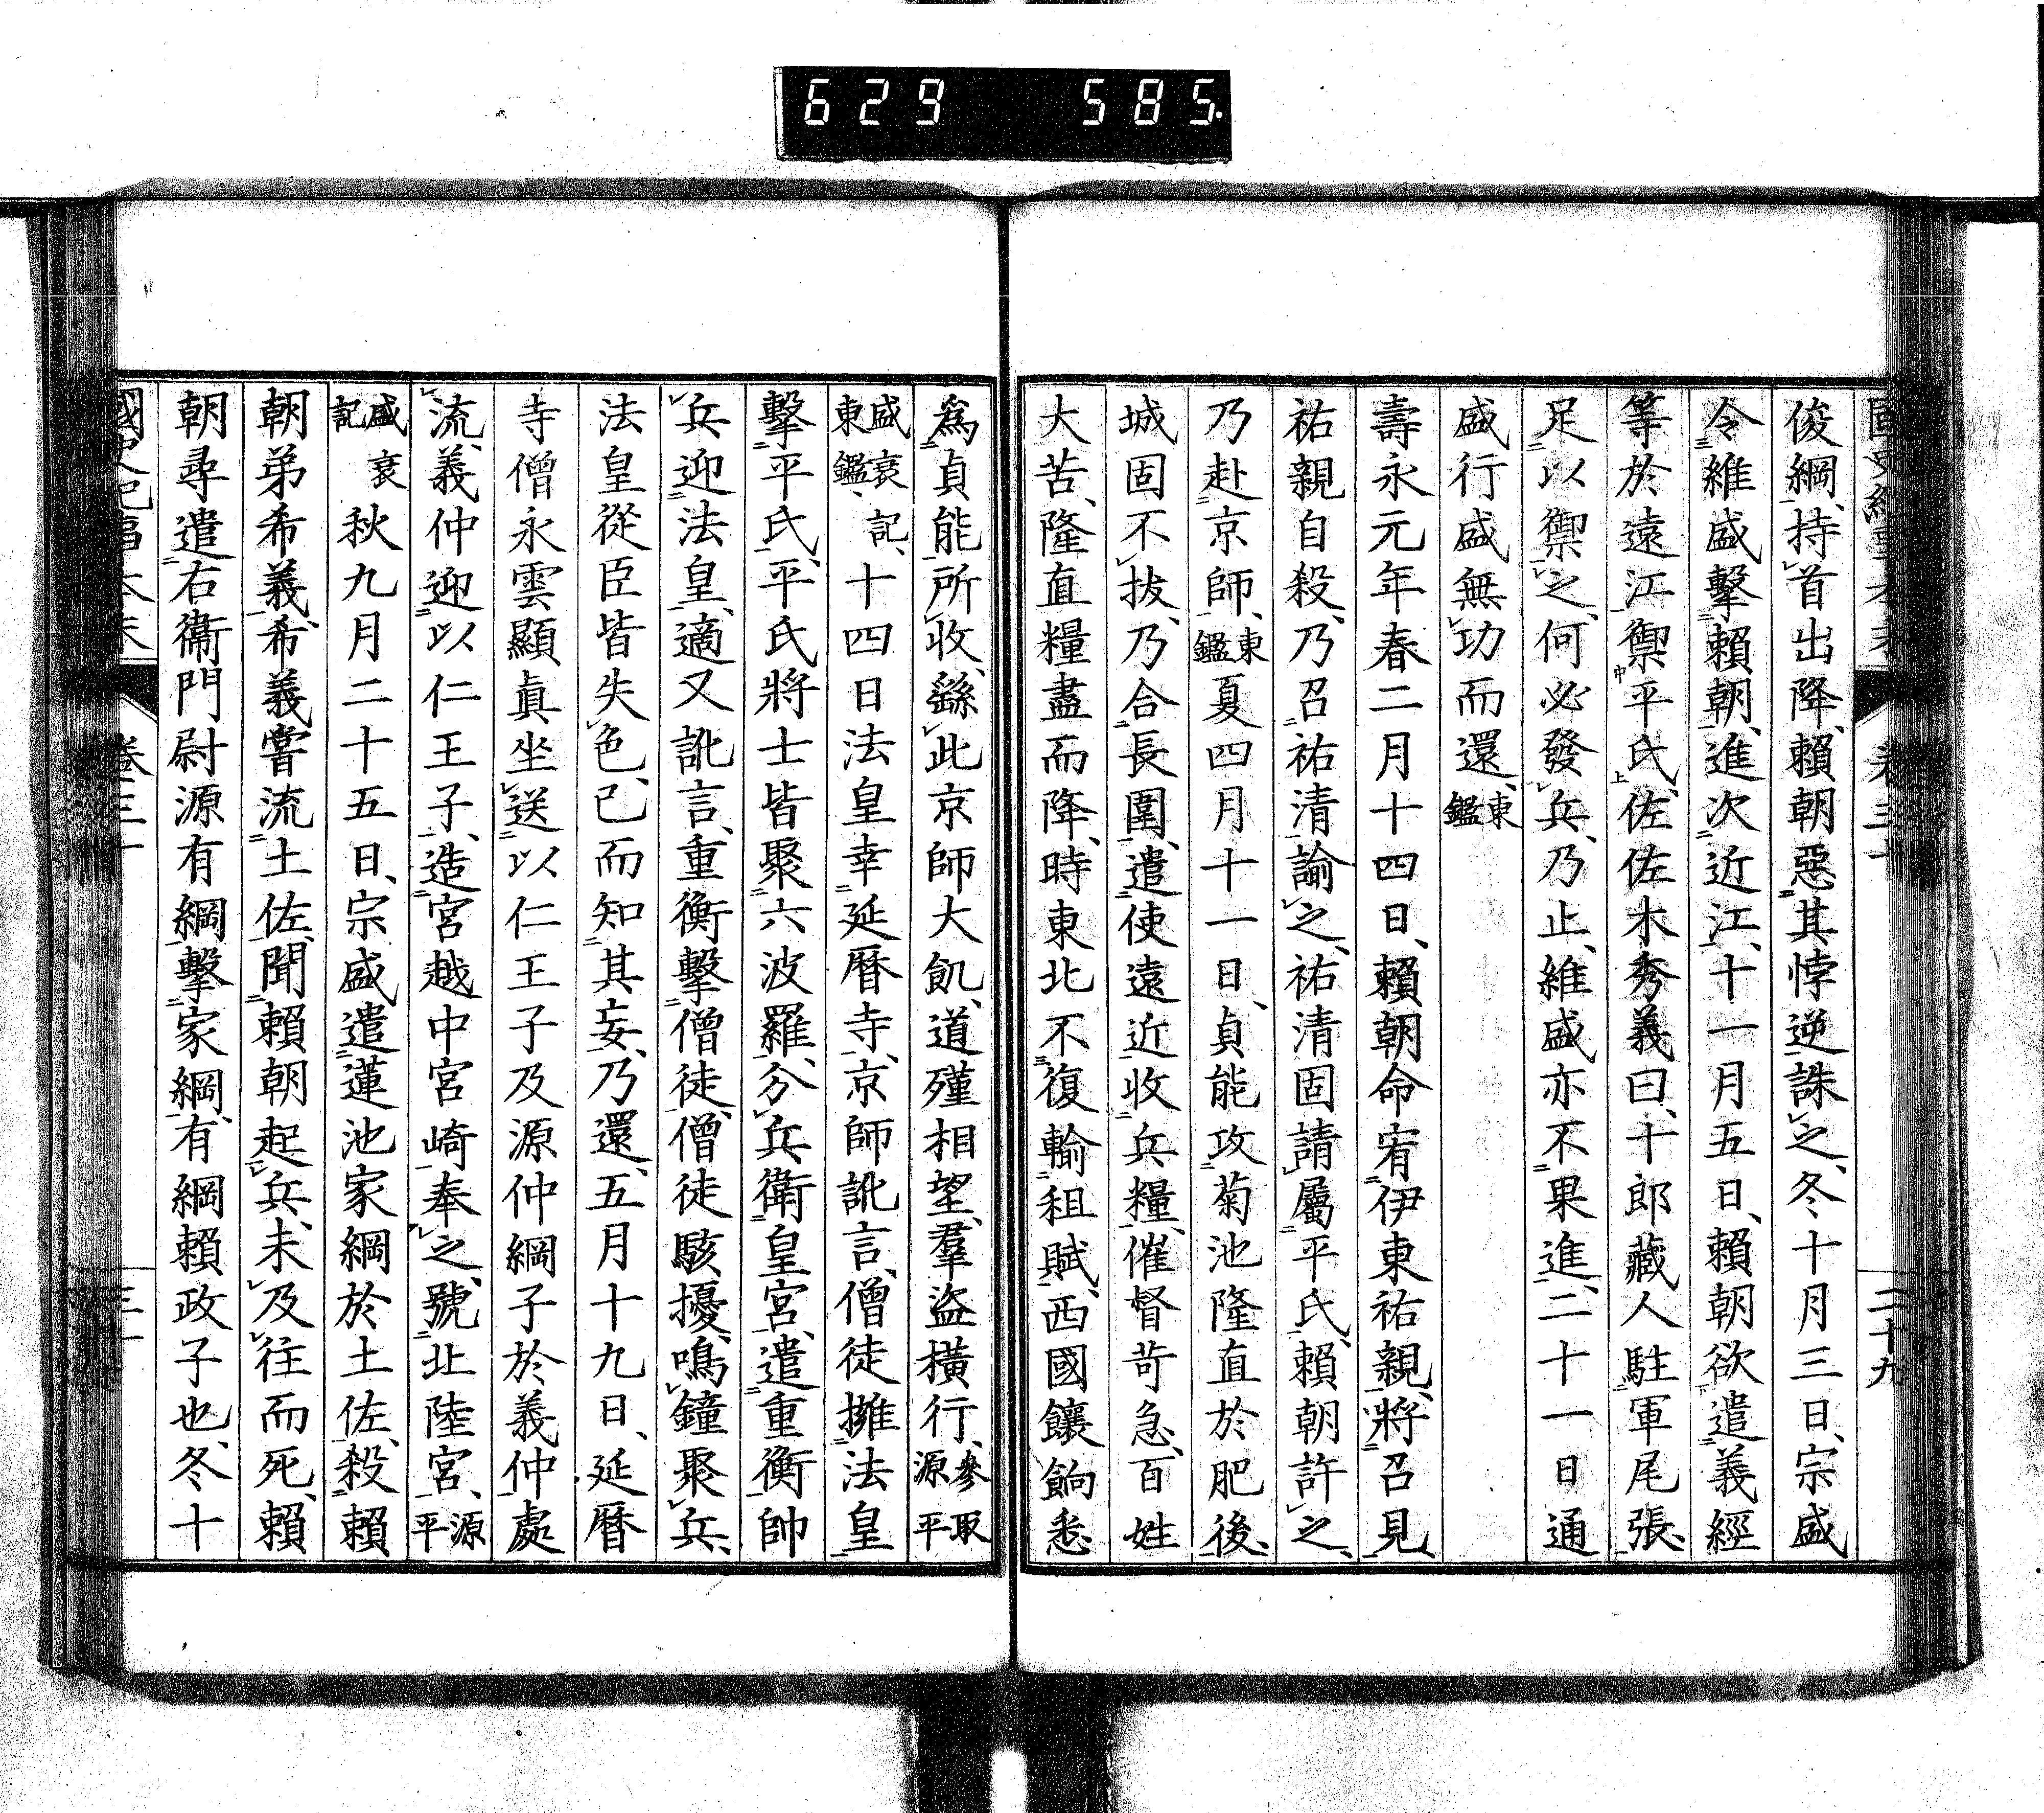 629 585.
二十九
俊綱、持首出降、賴朝惡其悖逆誅之、冬十月三日、宗盛
令維盛擊賴朝、進次近江、十一月五日、賴朝欲遣義經
等於遠江禦平氏、佐佐木秀義曰、十郎藏人駐軍尾張、
足以禦之、何必發兵、乃止、維盛亦不果進、二十一日通
盛行盛無功而還、東鑑
壽永元年春二月十四日、賴朝命宥伊東祐親、將召見
祐親自殺、乃召祐清諭之、祐清固請屬平氏、賴朝許之、
乃赴京師、東鑑夏四月十一日、貞能攻菊池隆直於肥後、
城固不拔、乃合長圍、遣使遠近收兵糧、催督苛急、百姓
大苦、隆直糧盡而降、時東北不復輸租賦、西國饟餉悉
爲貞能所收、繇此京師大飢、道殣相望、羣盜橫行、參取源平
盛衰記、東鑑、十四日法皇幸延曆寺、京師訛言、僧徒擁法皇
擊平氏、平氏將士皆聚六波羅、分兵衛皇宮、遣重衡帥
兵迎法皇、適又訛言、重衡擊僧徒、僧徒駭擾、鳴鐘聚兵、
法皇從臣皆失色、已而知其妄、乃還、五月十九日、延曆
寺僧永雲顯眞坐送以仁王子及源仲綱子於義仲處
流、義仲迎以仁王子、造宮越中宮崎奉之、號北陸宮、源平
盛衰記秋九月二十五日、宗盛遣蓮池家綱於土佐、殺賴
朝弟希義、希義嘗流土佐、聞賴朝起兵、未及往而死、賴
朝尋遣右衞門尉源有綱擊家綱、有綱賴政子也、冬十
國史紀事本末 卷三十 三十